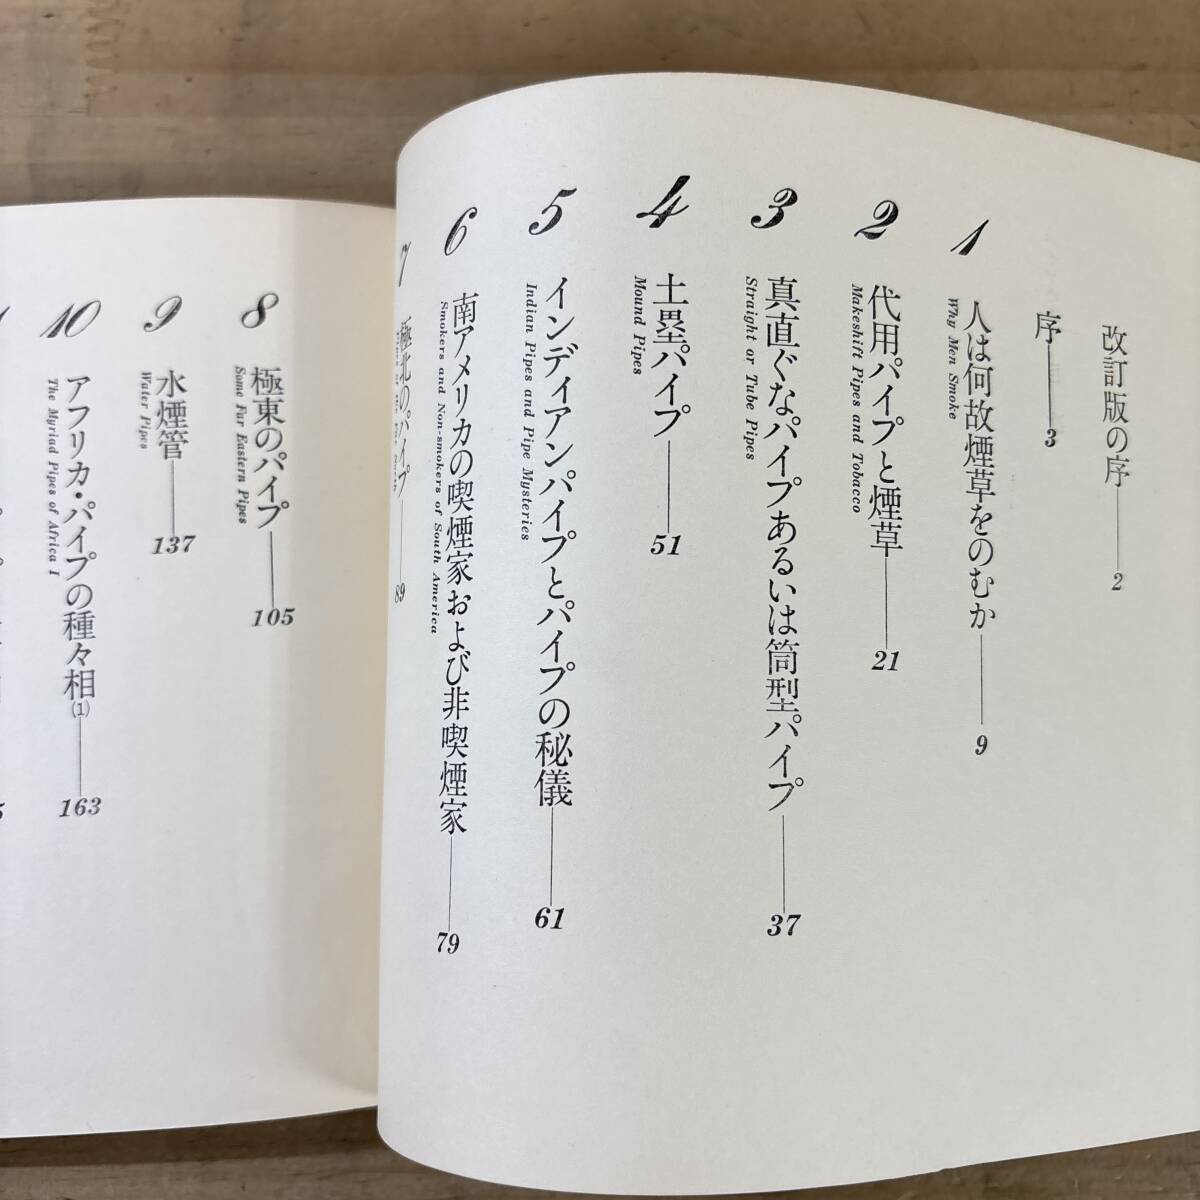 改訂版の序 2
序 3
1 人は何故煙草をのむか 9
Why Men Smoke
2 代用パイプと煙草 21
Makeshift Pipes and Tobacco
3 真直ぐなパイプあるいは筒型パイプ 37
Straight or Tube Pipes
4 土塁パイプ 51
Mound Pipes
5 インディアンパイプとパイプの秘儀 61
Indian Pipes and Pipe Mysteries
6 南アメリカの喫煙家および非喫煙家 79
Smokers and Non-smokers of South America
7 極北のパイプ 89
8 極東のパイプ 105
Some Far Eastern Pipes
9 水煙管 137
Water Pipes
10 アフリカ・パイプの種々相(1) 163
The Myriad Pipes of Africa I